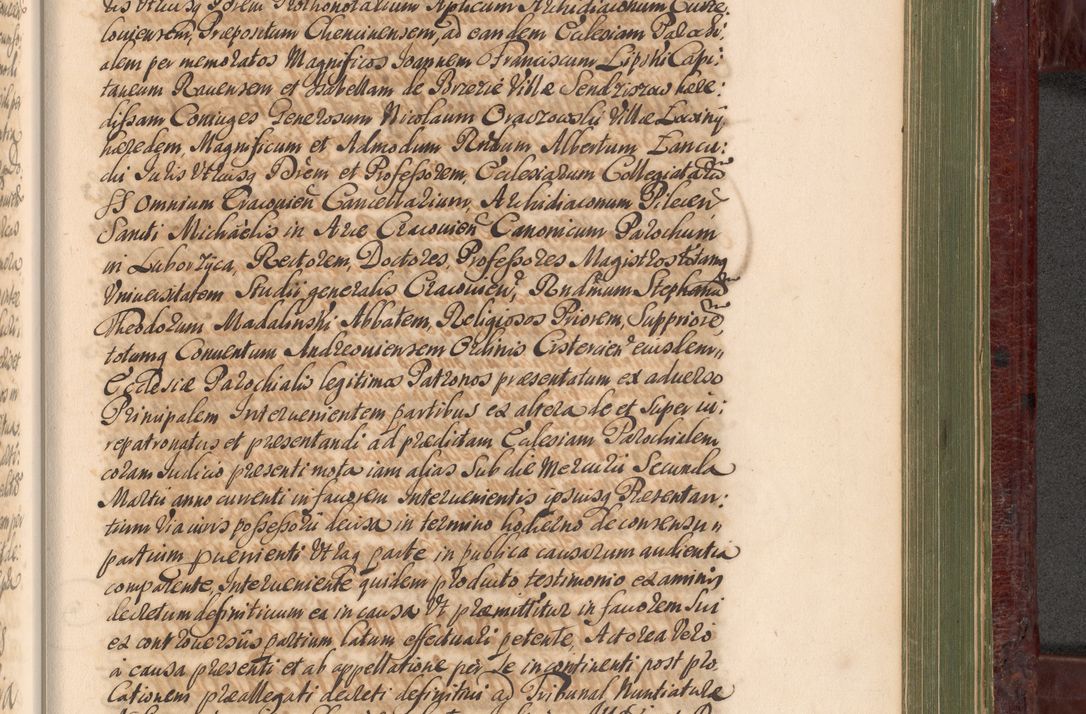 lris Utriusq Dorem Prothonotarium Aplicum Archidiaconum Curze,
loviensem, Præpositum Chencinensem, ad eandem Ecclesiam Parochi,
alem per memoratos Magnificos Joannem Franciscum Lipski Capi:
taneum Ravensem et Isabellam de Brzezie Villæ Sendziszow hære:
dissam Coniuges Generosum Nicolaum Oraczowski Villæ Lowiny
hæredem, Magnificum et Admodum Rndum Albertum Lancu:
cki Iuris Utriusq Dorem et Professorem, Ecclesiarum Collegiatarũ
SS Omnium Cracovien Cancellarium, Archidiaconum Pilecen
Sancti Michaelis in Arce Cracovien Canonicum Parochum
in Luborzyca, Rectorem, Doctores Professores Magistros totamq
Universitatem Studii generalis Cracovien, Rndmum Stephanũ
Theodorum Madalinski Abbatem, Religiosos Priorem, Suppriorẽ
totumq Conventum Andreoviensem Ordinis Cistercien eiusdem
Ecclesiæ Parochialis legitimos Patronos præsentatum ex adverso
Principalem Intervenientem partibus ex altera de et super iu:
repatronatus et præsentandi ad prædictam Ecclesiam Parochialem
coram Iudicio præsenti mota iam alias Sub die Mercurii Secunda
Martii anno currenti in favorem Intervenientis ipsiusq Præsentan:
tium Via iuris possessorii decisa in termino hodierno de consensu
partium provenienti Utraq parte in publica causarum audientia
comparente, Interveniente quidem producto testimonio examinis
decretum definitivum ea in causa Ut præmittitur in favorem Sui
ex controversiis partium latum effectuari petente, Actorea Vero
à causa præsenti et ab appellatione per Se incontinenti post pro
lationem præallegati decreti definitivi ad Tribunal Nuntiaturæ